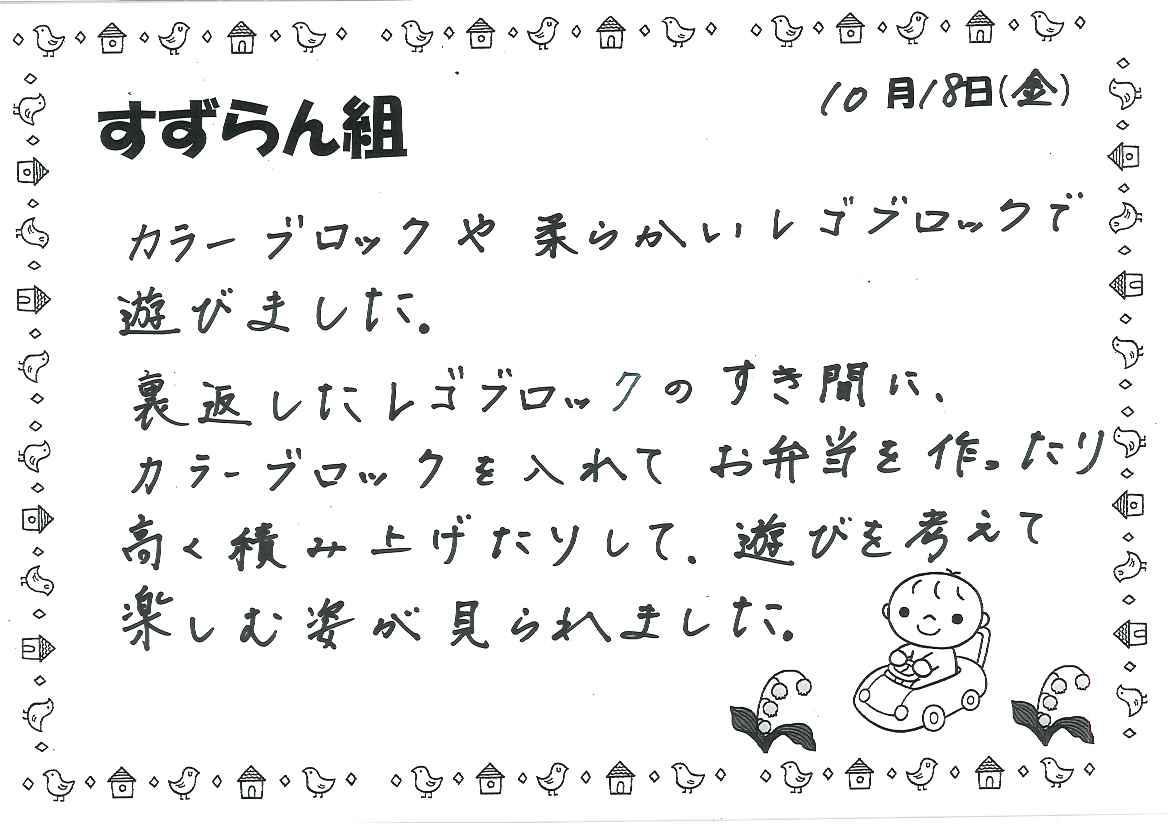 10月18日(金)
すずらん組
カラーブロックや柔らかいレゴブロックで
遊びました。
裏返したレゴブロックのすき間に、
カラーブロックを入れてお弁当を作ったり
高く積み上げたりして、遊びを考えて
楽しむ姿が見られました。